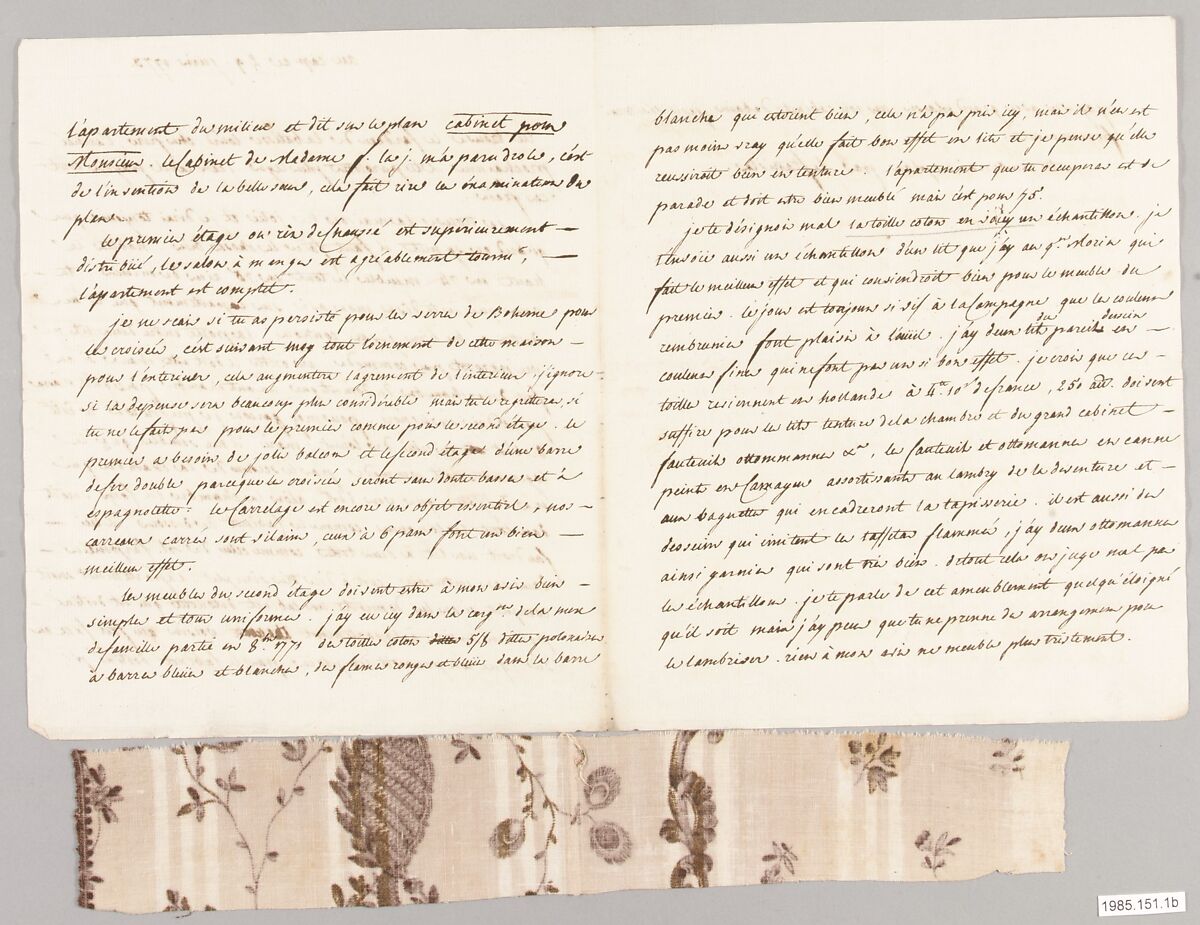 l'apartement du milieu et dit sur le plan cabinet pour
Monsieur. le Cabinet de Madame f. la j. m'a paru drole, c'est
de l'invention de la belle sœur, cela fait rire en examination du
plan
le premier étage ou rèz de Chaussé est supérieurement —
distribüé, le salon à manger est agréablement tourné, —
l'apartement est complet.
je ne scais si tu as persisté pour les verres de Boheme pour
les croisées, c'est suivant moy tout l'ornement de cette maison —
pour l'exterieur, cela augmentera l'agrement de l'interieur. j'ignore
si la depense sera beaucoup plus considérable mais tu le regrettera, si
tu ne le fait pas pour le premier comme pour le second étage. le
premier a besoin de jolis balcons et le second étage d'une barre
de fer double parceque les croisées seront sans doute basses et à
espagnolette. le Carrelage est encore un objet essentiel, nos —
carreaux carrés sont vilains, ceux à 6 pans font un bien —
meilleur effet.
les meubles du second étage doivent etre à mon avis bien —
simples et tous uniformes. j'ay eu icy dans la carg.on de la mere
de famille partie en 8.bre 1771 des toilles coton 5/8 dittes polonaises
à barres bleües et blanches, des flames rouges et bleüe dans la barre
blanche qui etoient bien, cela n'a pas pris icy, mais il n'en est
pas moins vray qu'elle fait bon effet en lits et je pense qu'elle
reussiroit bien en tenture. l'apartement que tu occuperas est de
parade et doit etre bien meublé mais c'est pour 75.
je te désignois mal la toille coton en voicy un échantillon. je
t'envoie aussi un échantillon d'un lit que j'ay au q.er Morin qui
fait le meilleur effet et qui conviendroit bien pour le meuble du
premier. le jour est toujours si vif à la Campagne que les couleurs
rembrunies font plaisir à l'œuil. j'ay deux lits du pareil dessein en —
couleurs fines qui ne font pas un si bon effet. je crois que ces —
toilles reviennent en hollande à 4.lt 10.s de france, 250 au. doivent
suffire pour les lits tentures de la chambre et du grand cabinet —
fauteuils ottommannes &.a, les fauteuils et ottomannes en cannes
peints en Camayeu assortissants au lambry de la devanture et —
aux baguettes qui encadreront la tapisserie. il est aussi des
desseins qui imitent les taffetas flammés, j'ay deux ottomannes
ainsi garnies qui sont très bien. de tout cela on juge mal par
les échantillons. je te parle de cet ameublement quelqu'éloigné
qu'il soit mais j'ay peur que tu ne prennes des arrangemens pour
le lambriser. rien à mon avis ne meuble plus tristement.
1985.151.1b